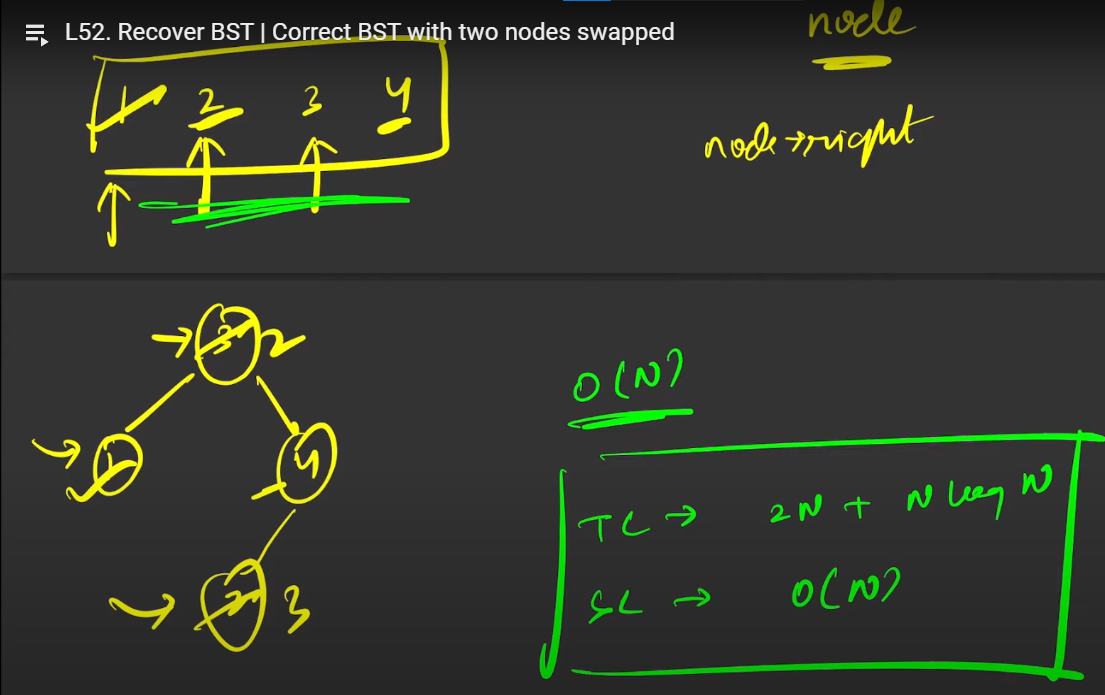 L52. Recover BST | Correct BST with two nodes swapped
node
1 2 3 4
node→right
3 2
O(N)
1
4
TC → 2N + N log N
2 3
SC → O(N)